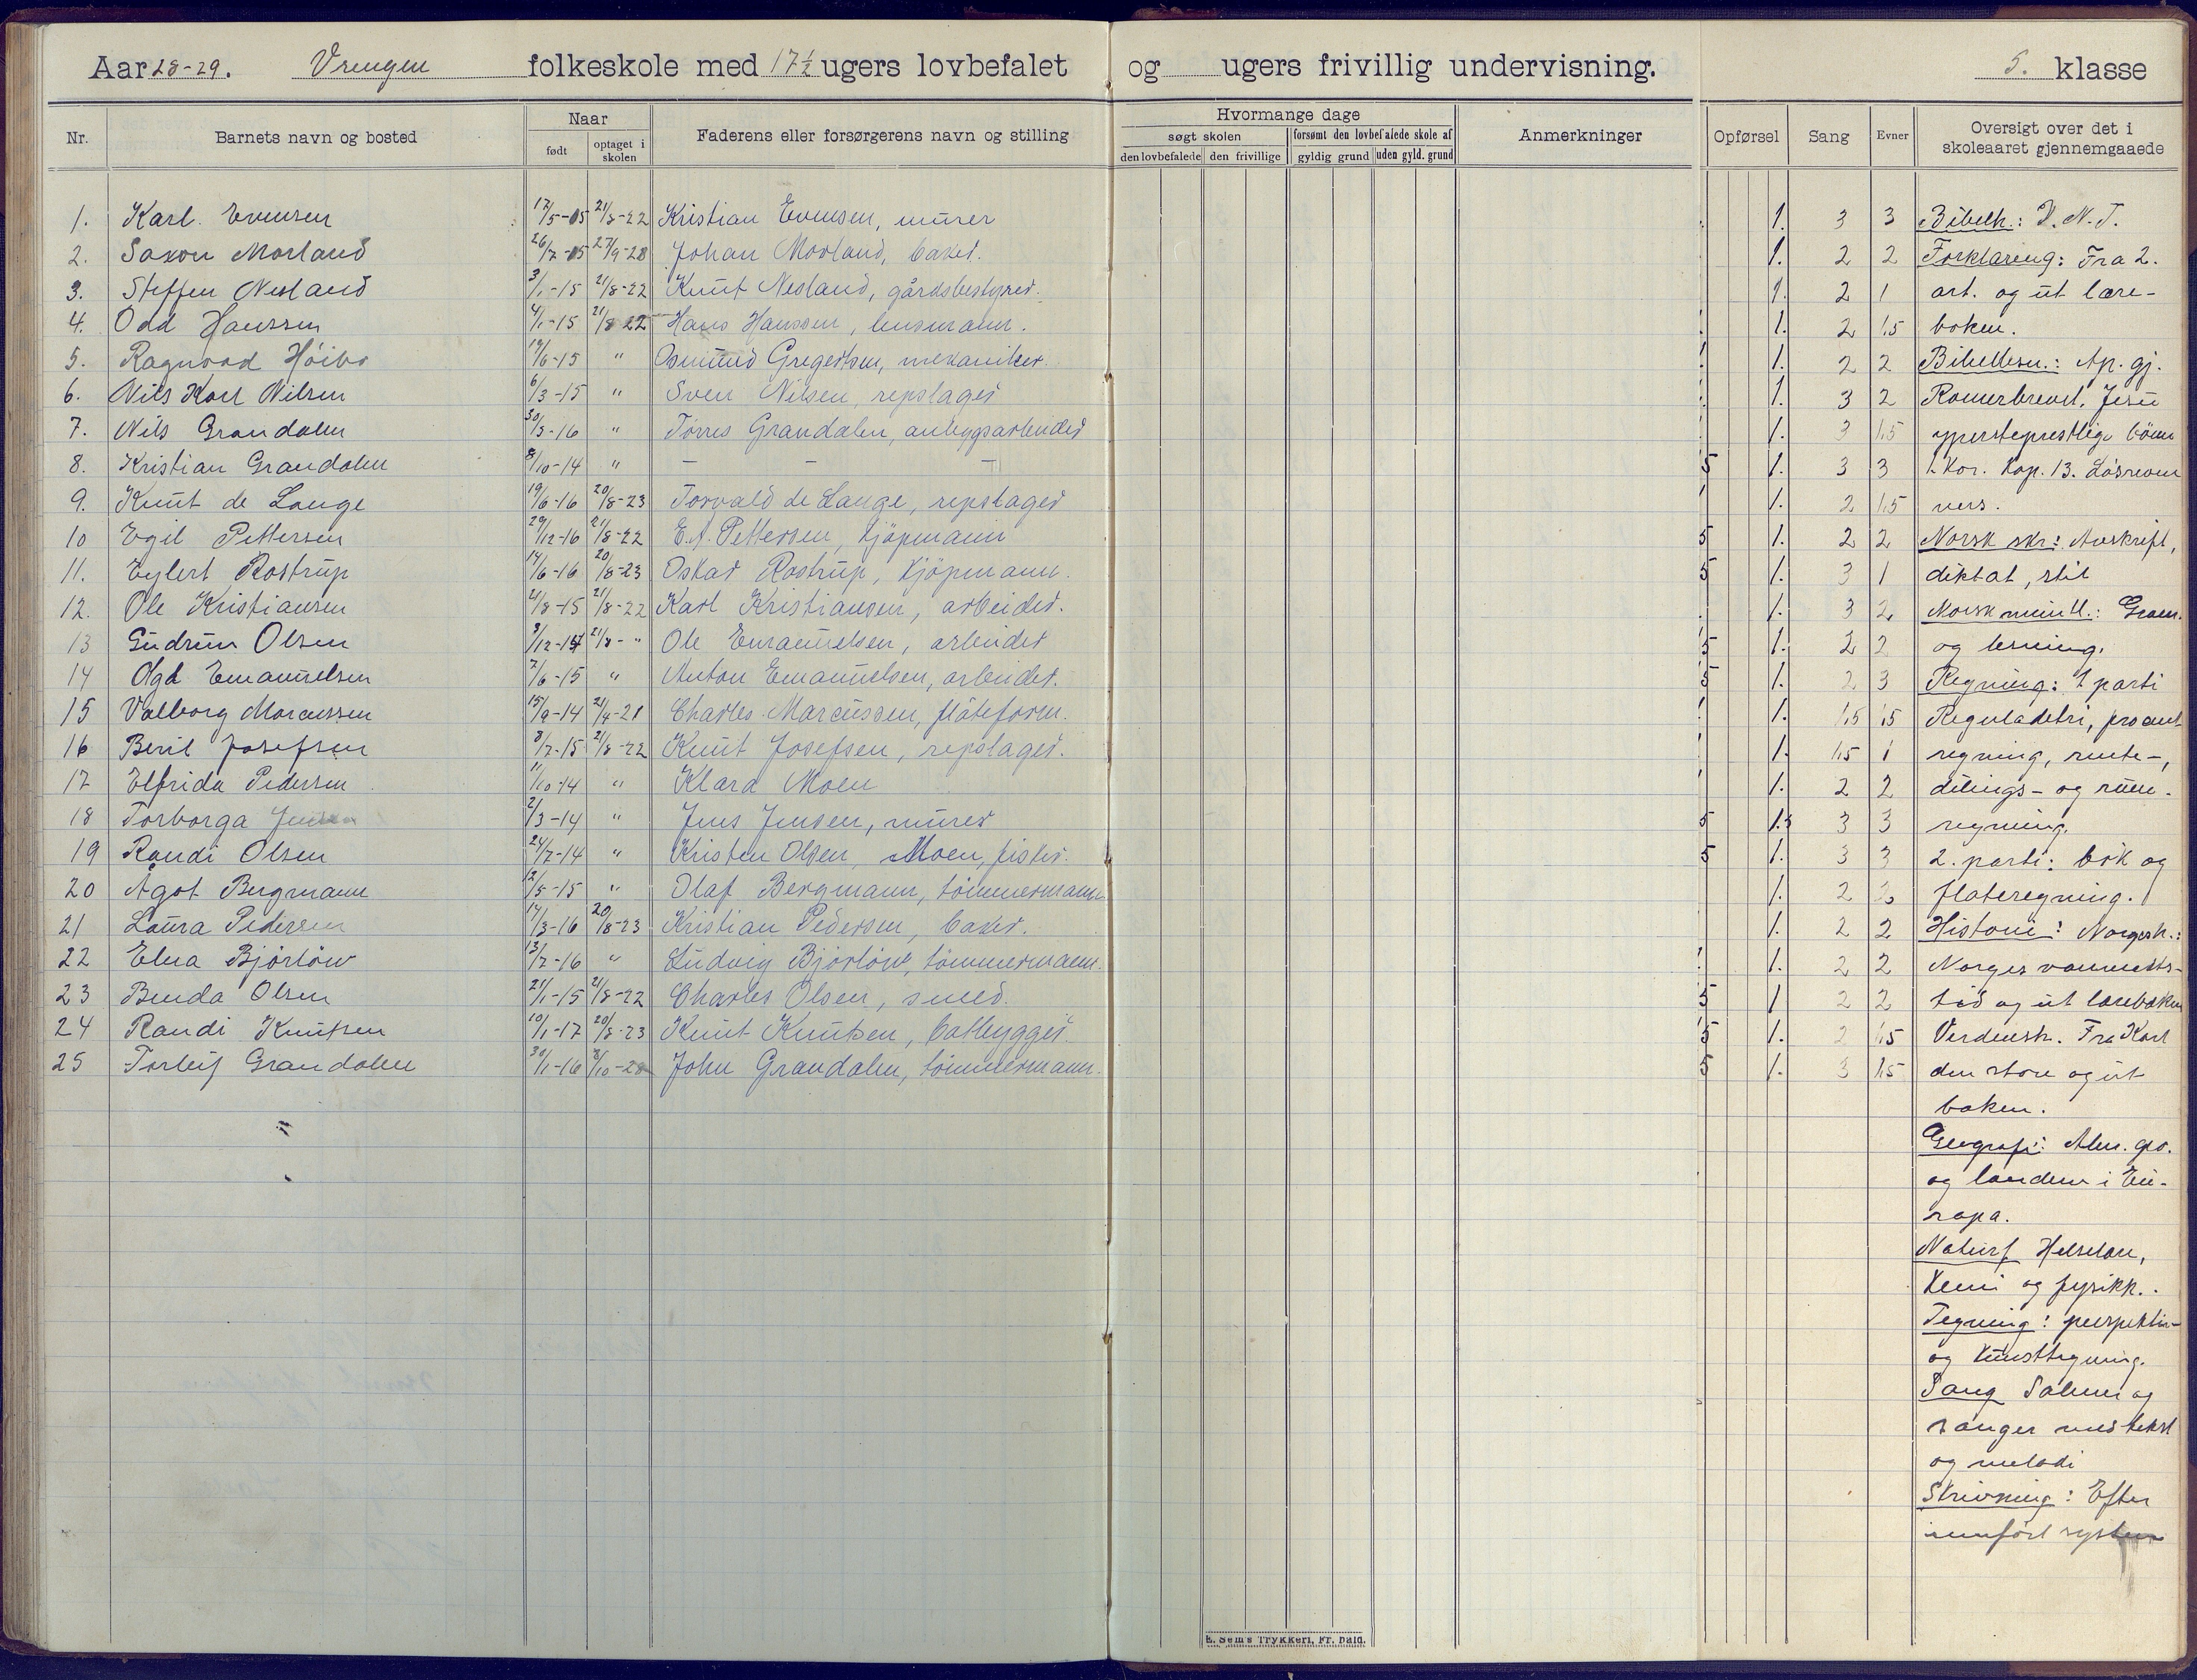 Aar 28-29. Vrengen folkeskole med 17½ ugers lovbefalet og ugers frivillig undervisning. 5. klasse
Nr. Barnets navn og bosted Naar født optaget i skolen Faderens eller forsørgerens navn og stilling Hvormange dage søgt skolen den lovbefalede den frivillige forsømt den lovbefalede skole af gyldig grund uden gyld. grund Anmerkninger Opførsel Sang Evner Oversigt over det i skoleaaret gjennemgaaede
1. Karl Evensen 17/5-15 21/8-22 Kristian Evensen, murer 1. 3 3 Bibelh.: N.T.
2. Saxon Morland 26/7-15 27/9-28 Johan Morland, baker. 1. 2 2 Forklaring: Fra 2.
3. Steffen Nesland 3/1-15 21/8-22 Knut Nesland, gårdsbestyrer. 1. 2 1 art. og ut lære-
4. Odd Hanssen 4/1-15 21/8 22 Hans Hanssen, lensmann. 1. 2 1,5 boken.
5. Ragnvad Höibo 19/6-15 " Osmund Gregersen, mekaniker. 1. 2 2 Bibellesn.: Ap. gj.
6. Nils Karl Nilsen 6/3-15 " Sven Nilsen, repslager 1. 3 2 Romerbrevet, Jesu
7. Nils Grandalen 30/3-16 " Torres Grandalen, anleggsarbeider 1. 3 1,5 ypersteprestlige bönn
8. Kristian Grandalen 8/10-14 " — — — 5 1. 3 3 1. Kor. Kap. 13. Lösrevne
9. Knut de Lange 19/6-16 20/8-23 Torvald de Lange, repslager 1. 2 1,5 vers.
10 Egil Pettersen 29/12-16 21/8-22 E. A. Pettersen, kjöpmann 5 1. 2 2 Norsk skr: Avskrift,
11. Eylert Rostrup 14/6-16 20/8-23 Oskar Rostrup, kjöpmann. 5 1. 3 1 diktat, stil
12. Ole Kristiansen 4/8-15 21/8-22 Karl Kristiansen, arbeider. 1. 3 2 Norsk muntl.: Gram.
13 Gudrun Olsen 3/12-14 21/8-" Ole Emanuelsen, arbeider 5 1. 2 2 og lesning.
14 Olga Emanuelsen 7/6-15 " Anton Emanuelsen, arbeider. 5 1. 2 3 Regning: 1 parti
15 Valborg Marcussen 15/9-14 21/4-21 Charles Marcussen, flåteform. 1. 1,5 1,5 Reguladetri, procent
16 Beril Josefsen 3/7-15 21/8-22 Knut Josefsen, repslager. 1. 1,5 1 regning, rente-,
17 Elfrida Pedersen 11/10-14 " Klara Moen 1. 2 2 delings- og rum-
18 Torborga Jensen 2/3-14 " Jens Jensen, murer 5 1.5 3 3 regning.
19 Randi Olsen 24/7-14 " Kristen Olsen Moen, fisker. 5 1. 3 3 2. parti: brök og
20 Ågot Bergmann 12/5-15 " Olaf Bergmann, tömmermann 1. 2 2 flateregning.
21 Laura Pedersen 14/3-16 20/8-23 Kristian Pedersen, baker. 1. 2 2 Historie: Norgesh.:
22 Elna Björlöw 13/7-16 " Ludvig Björlöw, tömmermann. 1. 2 2 Norges vanmekts-
23 Benda Olsen 21/1-15 21/8-22 Charles Olsen, smed. 5 1 2 2 tid og ut læreboken
24 Randi Knutsen 10/1-17 20/8-23 Knut Knutsen, båtbygger 5 1. 2 1,5 Verdensh. Fra Karl
25 Torleif Grandalen 30/1-16 8/10-28 John Grandalen, tömmermann. 5 1. 3 1,5 den store og ut
boken.
Geografi: Alm. geo.
og landene i Eu-
ropa.
Naturf Helselære,
kemi og fysikk.
Tegning: perspektiv-
og kunsttegning.
Sang Salmer og
sanger med tekst
og melodi
Skrivning: Efter
innfört system
E. Sem's Trykkeri, Fr. hald.